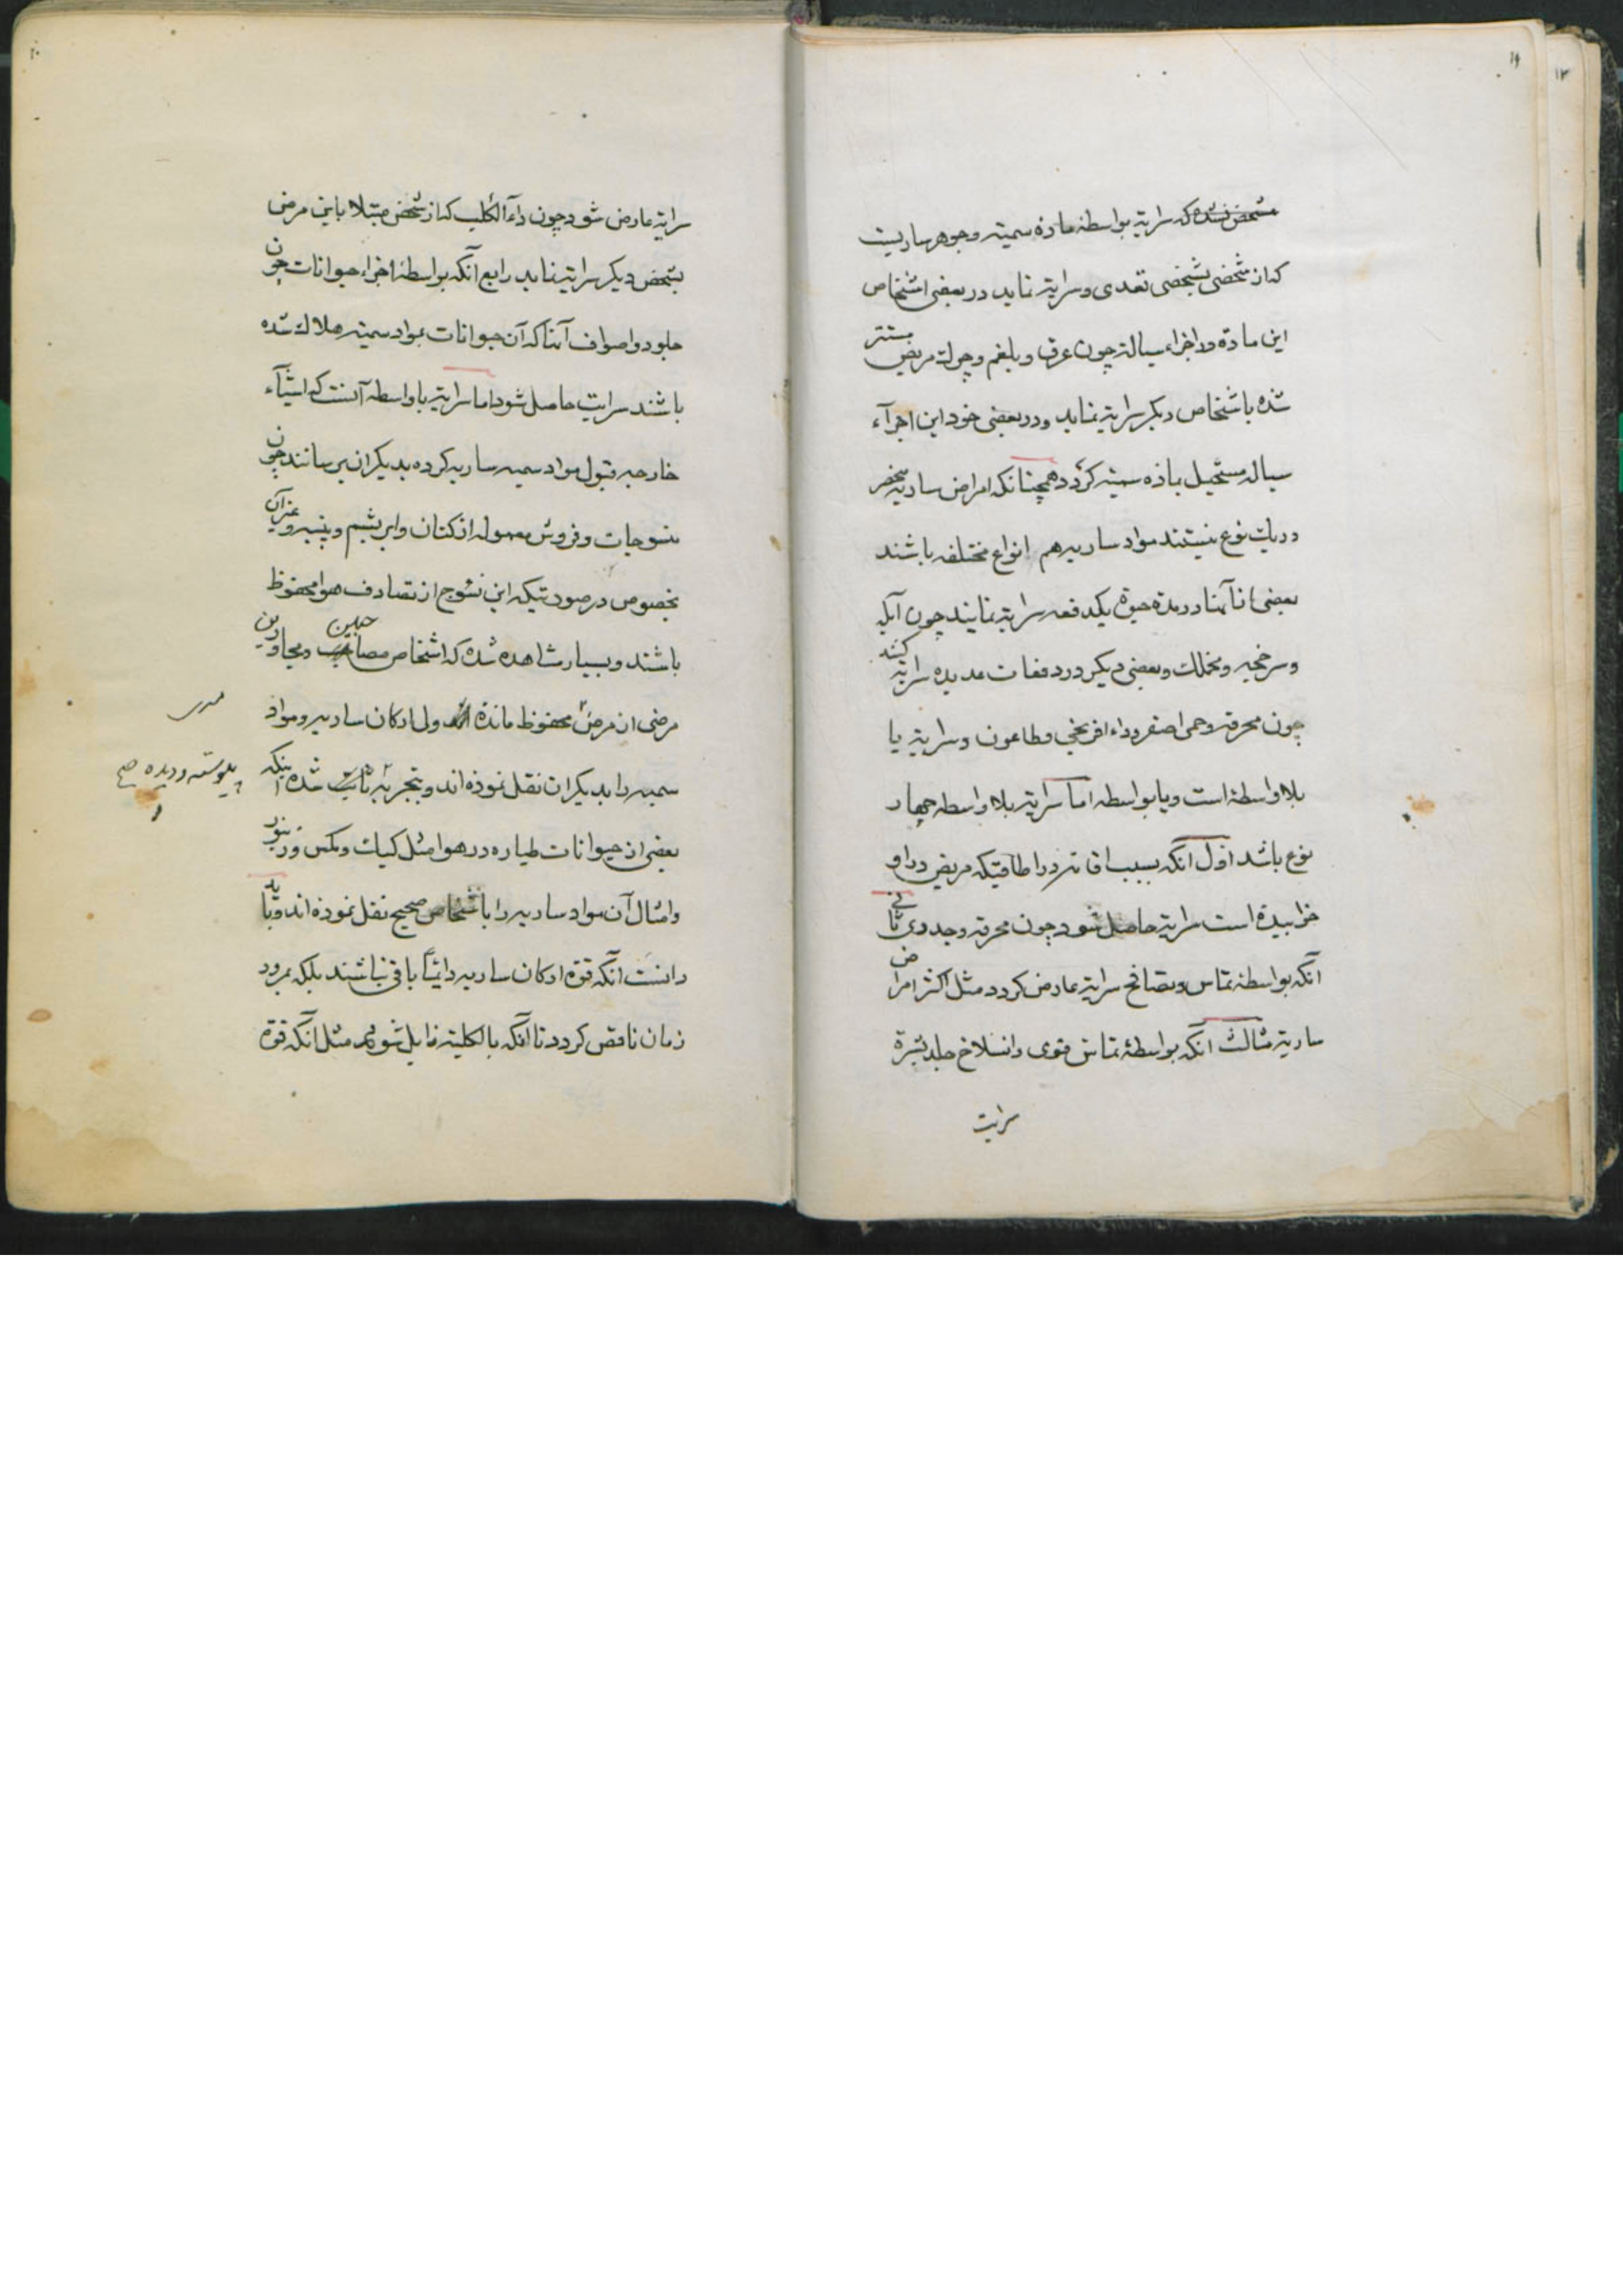 ۱۹
مشخص نشده که سرایة بواسطهٔ مادهٔ سمیته وجوهر ساریست
که از شخصی بشخصی تعدی و سرایة نماید در بعضی اشخاص
این مادة در اجزاء سیالة چون عرق و بلغم و چرك مریض مستتر
شده باشخاص دیکر سرایة نماید ودر بعضی خود این اجزآء
سیاله مستحیل بماده سمیته کردد همچنانکه امراض ساریه منحصر
در یك نوع نیستند مواد ساریه هم انواع مختلفه باشند
بعضی از آنها در مدة حیوة یکدفعه سرایة نمایند چون آبله
و سرخجه و مخملك وبعضی دیکر در دفعات عدیده سرایة کنند
چون محرقه وحمی اصفر وداء افرنجی وطاعون وسرایة یا
بلا واسطهٔ است ویا بواسطه اما سرایة بلا واسطه چهار
نوع باشد اول آنکه بسبب اقامة در اطاقیکه مریض در او
خوابیدة است سرایة حاصل شود چون محرقه وجدری ثانی
آنکه بواسطهٔ تماس وتصافح سرایة عارض کردد مثل اکثر امراض
ساریة ثالث آنکه بواسطهٔ تماس قوی وانسلاخ جلد بشرة
سرایت
۲۰
سرایة عارض شود چون داء الکلب که از شخص مبتلا باین مرض
بشخص دیکر سرایة نماید رابع آنکه بواسطهٔ اجزاء حیوانات چون
جلود واصواف آنها که آن حیوانات بمواد سمیته هلاك شده
باشند سرایت حاصل شود اما سرایة با واسطه آنست که اشیآء
خارجه قبول مواد سمیه ساریه کرده بدیکران برسانند چون
منسوجات و فروش معموله از کتان وابریشم وپنبه وغیرآن
بخصوص در صورتیکه این نسوج از تصادف هوا محفوظ
باشند وبسیار مشاهده شده که اشخاص مصاحبین ومجاورین
مرضی از مرض محفوظ مانده ولی ارکان ساریه ومواد
سمیه را بدیکران نقل نموده اند وبتجربه ثابت شده اینکه
بعضی از حیوانات طیاره در هوا مثل کیك ومکس وزنبور
وامثال آن مواد ساریه را باشخاص صحیح نقل نموده اند وباید
دانست آنکه قوة ارکان ساریه دائماً باقی نباشند بلکه بمرور
زمان ناقص کردد تا آنکه بالکلیته زایل شود مثل آنکه قوة